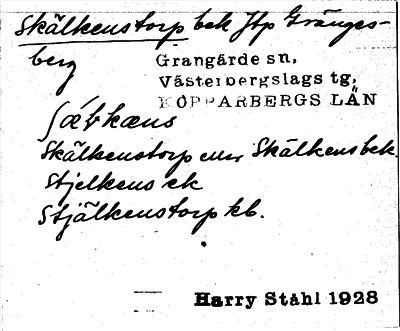 Skälkenstorp bek Jtp Gränges-
berg
Grangärde sn,
Västerbergslags tg,
KOPPARBERGS LÄN
Skälkenstorp enl Skälkens bek.
Stjelkens ek
Stjälkenstorp kb.
Harry Ståhl 1928